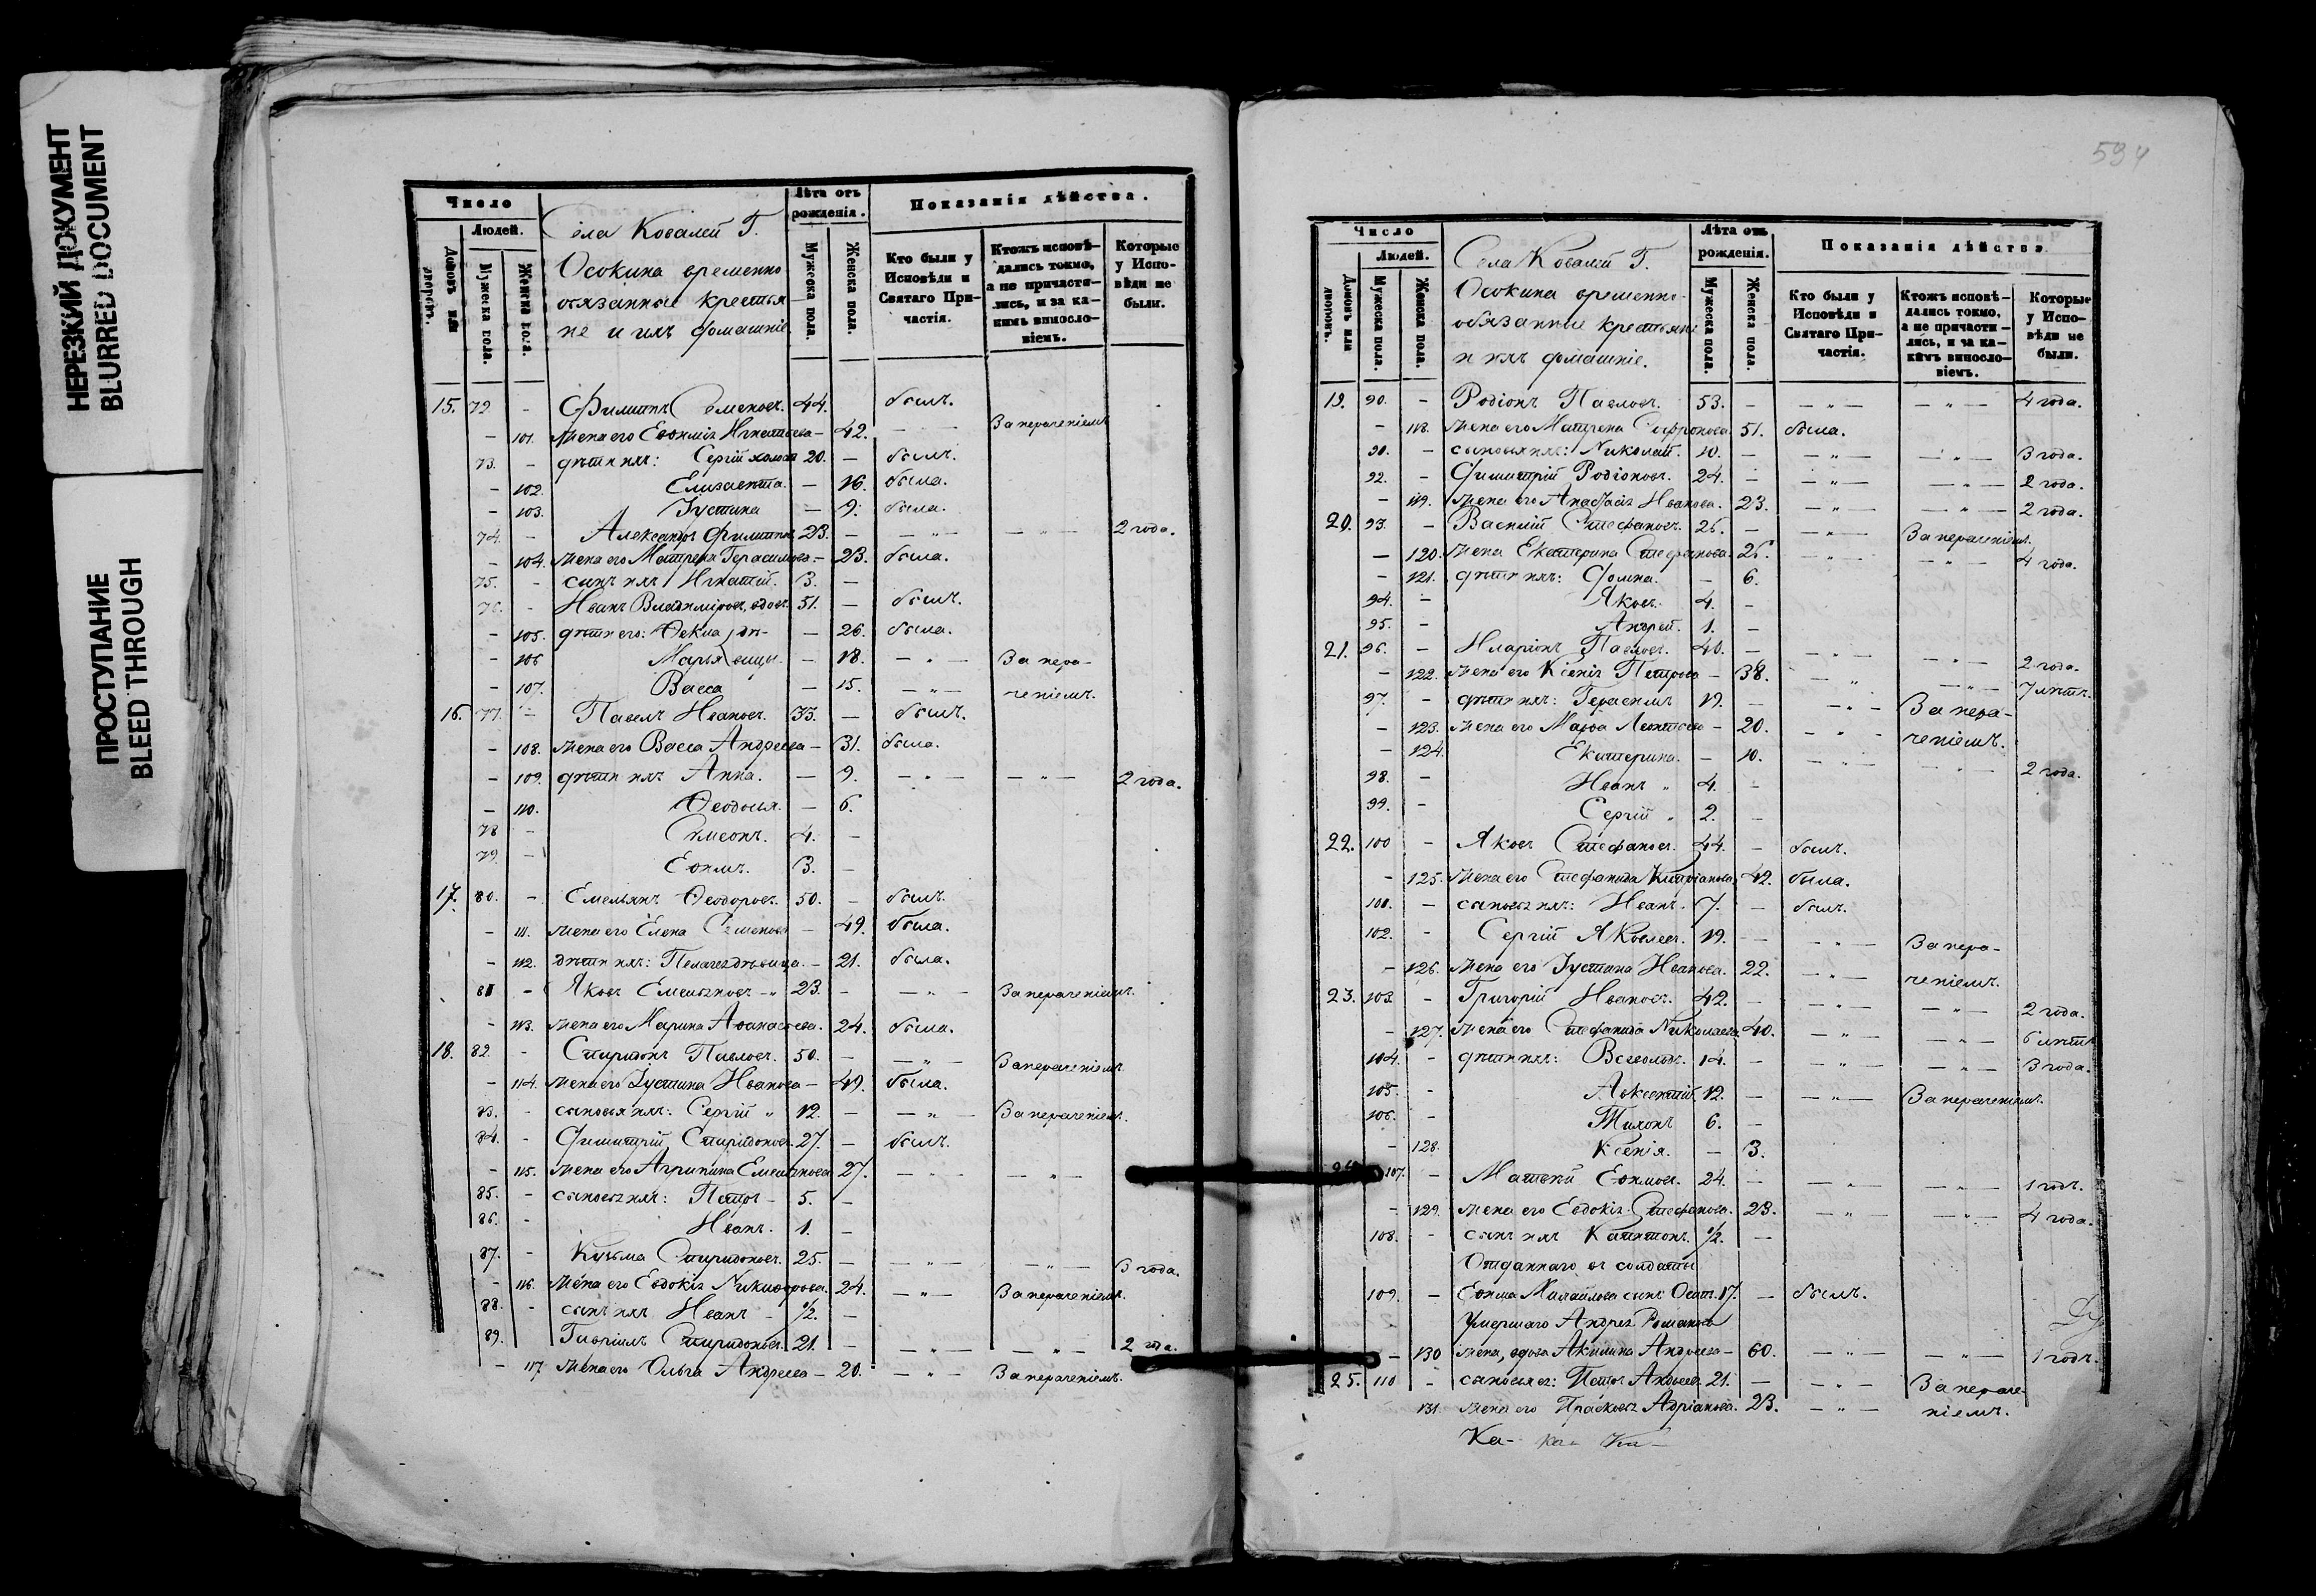 НЕРЕЗКИЙ ДОКУМЕНТ
BLURRED DOCUMENT
ПРОСТУПАНИЕ
BLEED THROUGH
Число
Людей.
Домовъ или дворовъ.
Мужеска пола.
Женска пола.
Села Ковалей Г.
Осокина временно
обязанные крестья-
не и ихъ домашніе
Лѣта отъ рожденія.
Мужеска пола.
Женска пола.
Показанія дѣйства.
Кто были у Исповѣди и Святаго При-частія.
Ктожъ исповѣ-дались токмо, а не причасти-лись, и за ка-кимъ винослo-віемъ.
Которые у Испо-вѣди не были.
15. 72. - Филиппъ Семеновъ. 44. былъ.
- 101. Жена его Евфимія Игнатьева - 42. - - За нераченіемъ
73. - дѣти ихъ: Сергій холостъ 20. - былъ.
- 102. Елизавета. - 16. была.
- 103. Іустина - 9. была.
74. - Александръ Филиппов. 23. - - „ - - „ - 2 года.
- 104. Жена его Матрена Герасимова - 23. была.
75. - сынъ ихъ Игнатій. 3. -
76. - Иванъ Владиміровъ, вдовъ. 51. - былъ.
- 105. дѣти его: Ѳекла дѣ- - 26. была.
- 106 Марья вицы. - 18. - „ - За нера-
- 107. Васса - 15. - „ - ченіемъ.
16. 77. - Павелъ Ивановъ. 33. - былъ.
- 108. Жена его Васса Андреева - 31. была.
- 109. дѣти ихъ Анна. - 9. - „ - - „ - 2 года.
- 110. Ѳеодосья. - 6.
78 - Симеонъ. 4. -
79. - Евфимъ. 3. -
17. 80. - Емельянъ Ѳеодоровъ. 50. - былъ.
- 111. Жена его Елена Семенова - 49. была.
- 112. дѣти ихъ: Пелагея дѣвица. - 21. была.
81 - Яковъ Емельяновъ - „ 23. - - „ - За нераченіемъ.
- 113. Жена его Марина Аѳанасьева. - 24. была.
18. 82. - Спиридонъ Павловъ. 50. - - „ - За нераченіемъ
- 114. Жена его Іустина Иванова - 49. была.
83. - сыновья ихъ: Сергій „ 12. - - „ - За нераченіемъ.
84. - Димитрій Спиридонов. 27. - былъ.
- 115. Жена его Агрипина Емельянова 27. - „ - - „ -
85. - сыновья ихъ: Петръ - 5. -
86. - Иванъ. 1. -
87. - Кузьма Спиридоновъ. 25. - - „ - - „ - 3 года.
- 116. Жена его Евдокія Никифорова. 24. - „ - За нераченіемъ.
88. - сынъ ихъ Иванъ - 1/2. -
89. - Гавріилъ Спиридоновъ. 21. - - „ - - „ - 2 года.
- 117 Жена его Ольга Андреева - 20. - „ - За нераченіемъ.
594
Число
Людей.
Домовъ или дворовъ.
Мужеска пола.
Женска пола.
Села Ковалей Г.
Осокина временно-
обязанные крестьяне
и ихъ домашніе.
Лѣта отъ рожденія.
Мужеска пола.
Женска пола.
Показанія дѣйства.
Кто были у Исповѣди и Святаго При-частія.
Ктожъ исповѣ-дались токмо, а не причасти-лись, и за ка-кимъ винослo-віемъ.
Которые у Испо-вѣди не были.
19. 90. - Родіонъ Павловъ. 53. - - „ - - „ - 4 года.
- 118. Жена его Матрена Софронова. 51. была.
91. - сыновья ихъ: Николай. 10. - - „ - - „ - 3 года.
92. - Димитрій Родіоновъ. 24. - - „ - - „ - 2 года.
- 119. Жена его Анастасія Иванова. 23. - „ - - „ - 2 года.
20. 93. - Василій Стефановъ. 26. - - „ - За нераченіемъ.
- 120. Жена Екатерина Стефанова. 26. - „ - - „ - 4 года.
- 121. дѣти ихъ: Домна. - 6.
94. - Яковъ. 4. -
95. - Андрей. 1. -
21. 96. - Иларіонъ Павловъ. 40. - - „ - - „ - 2 года.
- 122. Жена его Ксенія Петрова - 38. - „ - - „ - 7 лѣтъ.
97. - дѣти ихъ: Герасимъ 19. - - „ - За нера-
- 123. Жена его Марѳа Леонтьева - 20. - „ - ченіемъ.
- 124. Екатерина. - 10. - „ - - „ - 2 года.
98. - Иванъ „ 4. -
99. - Сергій „ 2. -
22. 100 - Яковъ Стефановъ. 44. - былъ.
- 125. Жена его Стефанида Кипріанова 42. была.
101. - сыновья ихъ: Иванъ. 7. - былъ.
102. - Сергій Яковлевъ. 19. - - „ - За нера-
- 126. Жена его Іустина Иванова. 22. - „ - ченіемъ.
23. 103. - Григорій Ивановъ. 42. - - „ - - „ - 2 года.
- 127. Жена его Стефанида Николаева 40. - „ - - „ - 6 лѣтъ
104. - дѣти ихъ: Всеволодъ. 14. - - „ - - „ - 3 года.
105. - Авксентій 12. - - „ - За нераченіемъ.
106. - Тихонъ 6. -
- 128. Ксенія. - 3.
24. 107. - Матвей Евфимовъ. 24. - - „ - - „ - 1 годъ.
- 129. Жена его Евдокія Стефанова. 23. - „ - - „ - 4 года.
108. - сынъ ихъ Капитонъ. 1/2. -
Отданнаго въ солдаты
109. - Евфима Михайлова сынъ 17. - былъ.
Умершаго Андрея Романова
- 130 Жена, вдова Акилина Андреева - 60. - „ - - „ - 1 годъ.
25. 110 - сыновья ея: Петръ Андреев. 21. - - „ - За нераче-
131. Жена его Прасковья Адріанова. 23. - „ - ніемъ.
Ка-